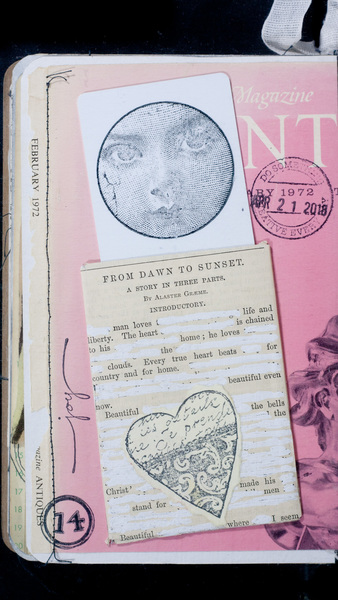 Magazine
NT
DO SOM
ARY 1972
APR 21 2018
ATIVE EVE
FEBRUARY 1972
FROM DAWN TO SUNSET.
A STORY IN THREE PARTS.
BY ALASTER GRÆME.
INTRODUCTORY.
man loves life and
liberty. The heart is chained
to his the home; he loves
clouds. Every true heart beats for
country and for home.
beautiful even
now.
Beautiful the bells
the
Christ' made his
stand for men
where I seem
Beautiful
zine ANTIQUES
16
17
18
19
20
14